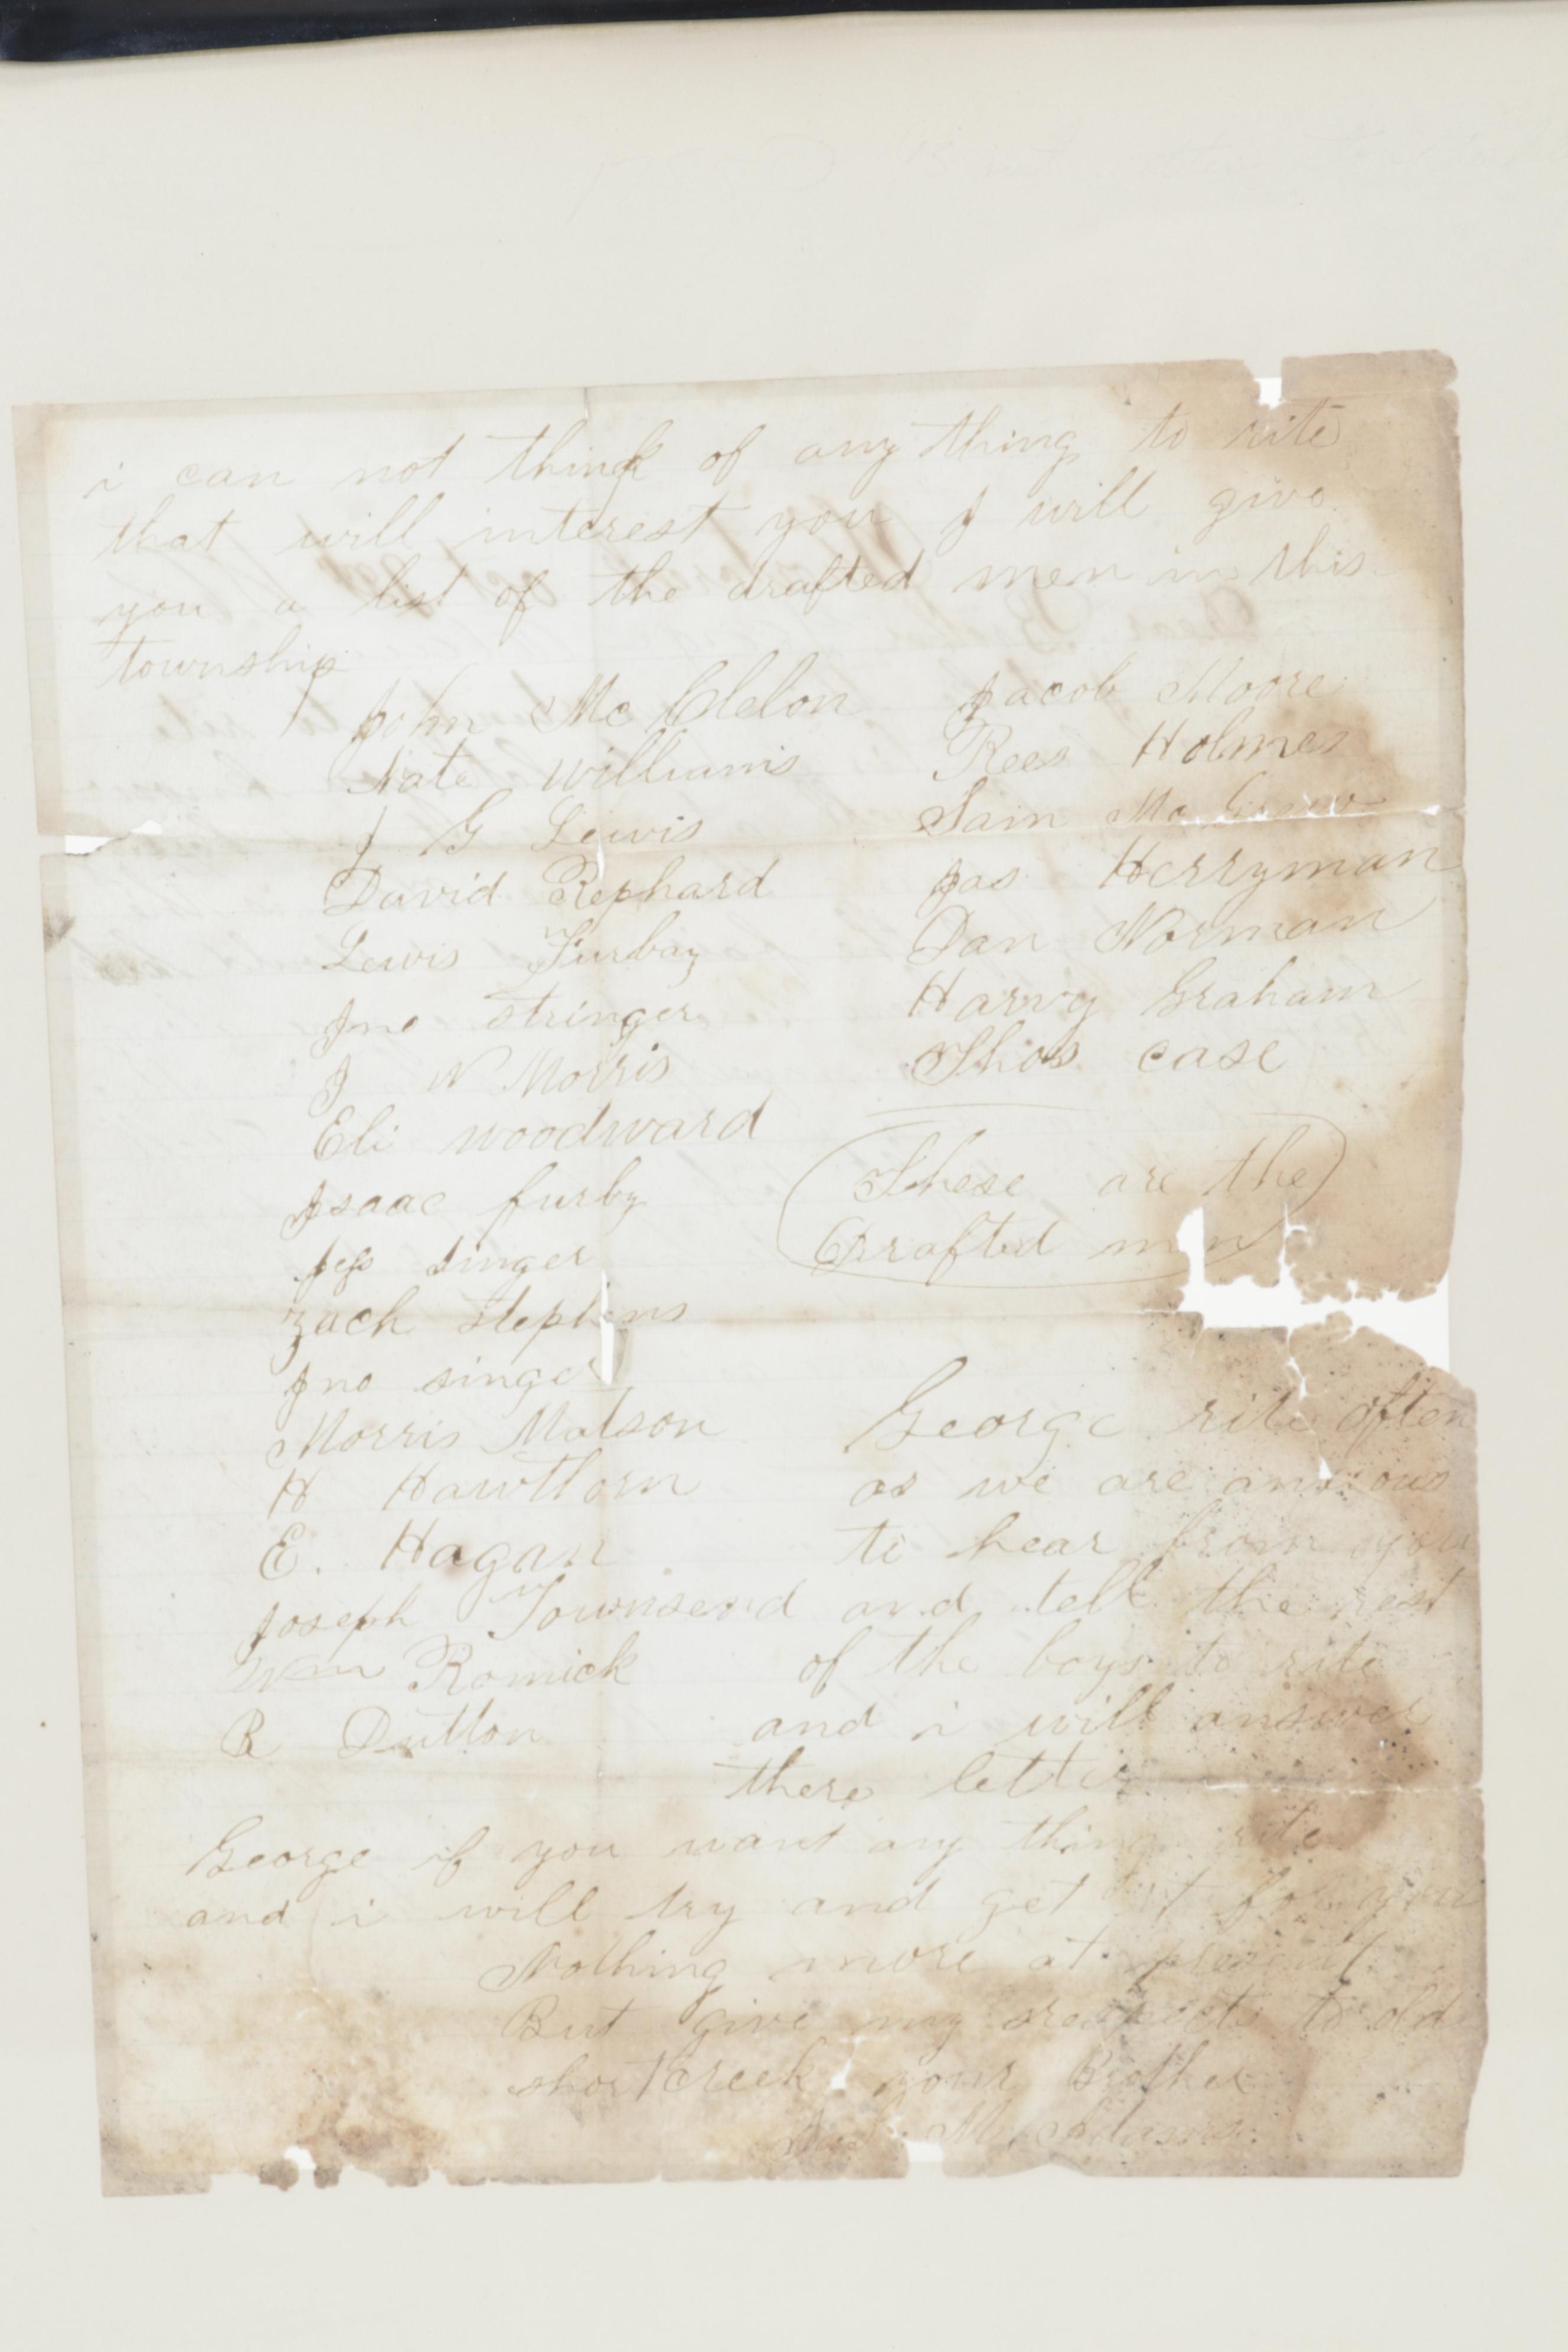 i can not think of any thing to rite
that will interest you I will give
you a list of the drafted men in this
township
John Mc Clelon
Nate williams
J G Lewis
David Rephard
Lewis Furbay
Jno stringer
J W Morris
Eli woodward
Isaac furby
Jess singer
Zach stephens
Jno singer
Morris Matson
H Hawthorn
E. Hagan
Joseph Townsend
Wm Romick
R Dutton
Jacob Moore
Rees Holmes
Sam Mc Grew
Jas Herryman
Dan Norman
Harvy Graham
Thos case
These are the
Drafted men
George rite often
as we are anxious
to hear from you
and tell the rest
of the boys to rite
and i will answer
there letters
George if you want any thing rite
and i will try and get it for you
Nothing more at present
But give my respects to old
short creek your Brother
Adams